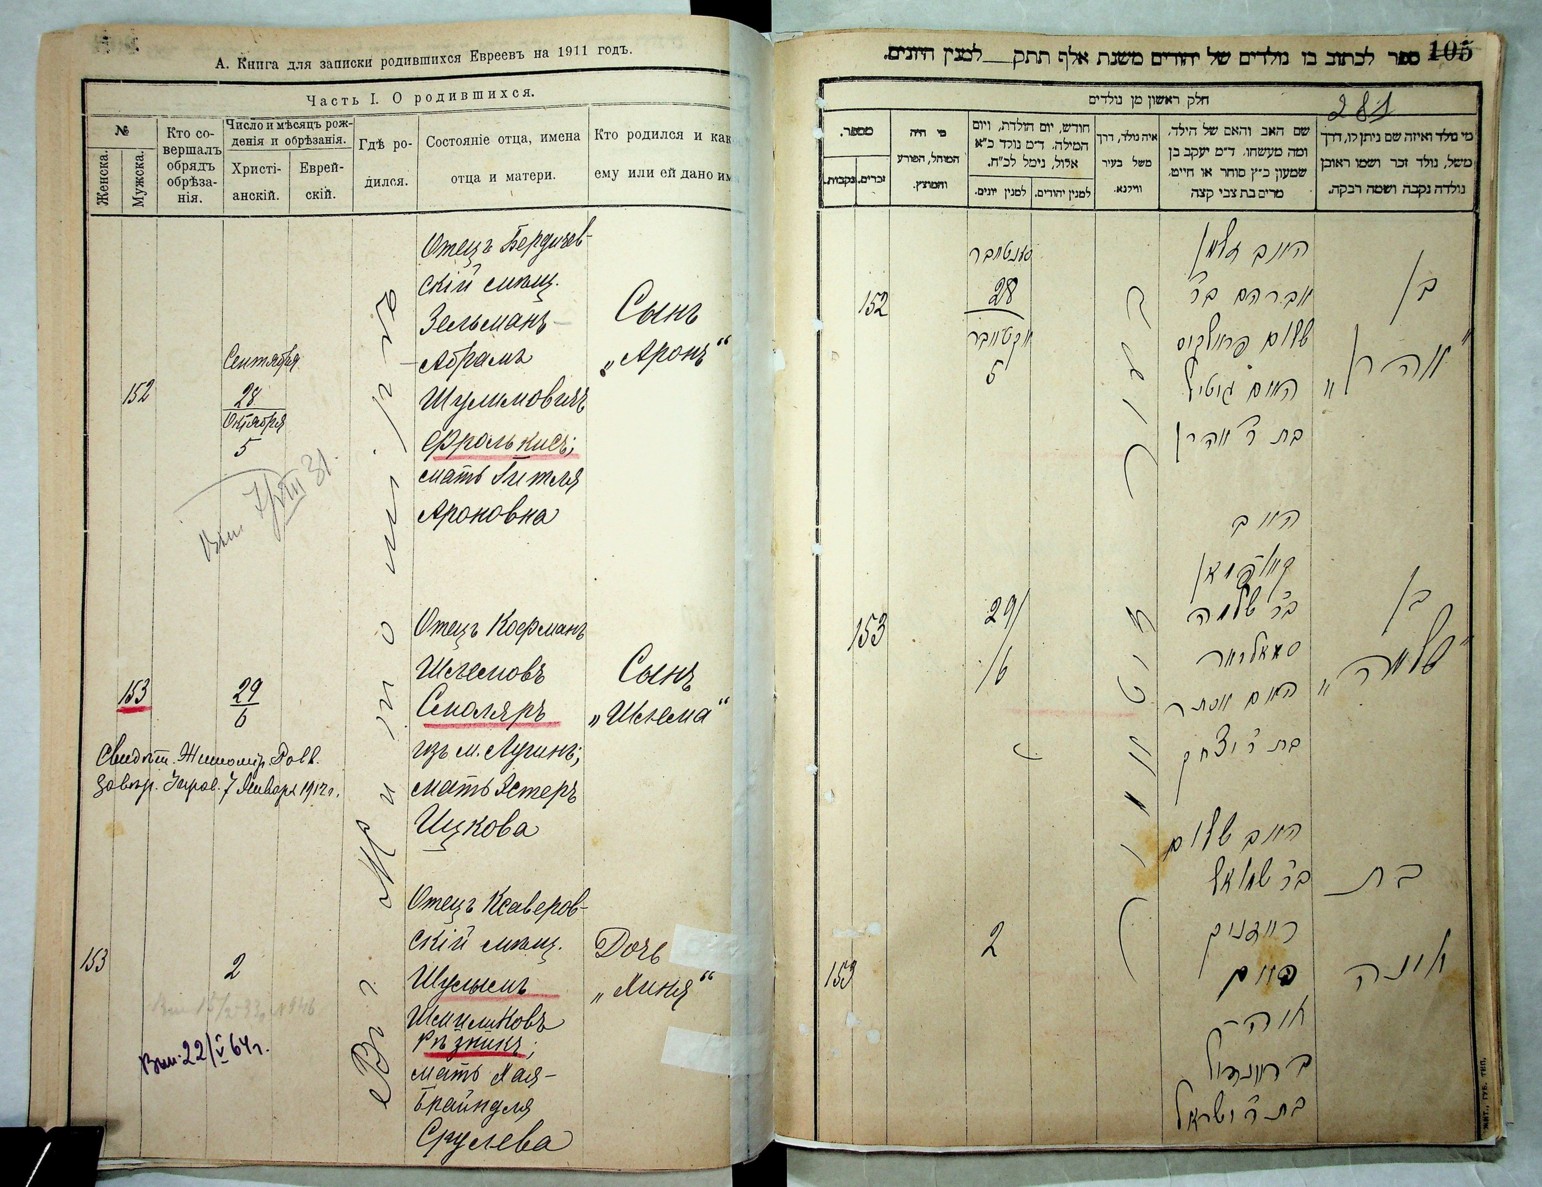 А. Книга для записки родившихся Евреевъ на 1911 годъ.
Часть I. О родившихся.
№
Женска.
Мужска.
Кто со-
вершалъ
обрядъ
обрѣза-
нія.
Число и мѣсяцъ рож-
денія и обрѣзанія.
Христі-
анскій.
Еврей-
скій.
Гдѣ ро-
дился.
Состояніе отца, имена
отца и матери.
Кто родился и как
ему или ей дано им
152
Сентября
28
Октября
5
Отецъ Бердичев-
скій мѣщ.
Зельманъ-
Абрамъ
Шулимовичъ
Фролькисъ;
мать Гитля
Ароновна
Сынъ
„Аронъ“
Вып. 7/VIII 31.
Въ г. Житомірѣ
153
29
6
Отецъ Кофманъ
Шлемовъ
Столяръ
изъ м. Лугинъ;
мать Эстеръ
Ицкова
Сынъ
„Шлема“
Свидѣт. Житомір. Равв.
7 Января 1912 г.
153
2
Отецъ Ксаверов-
скій мѣщ.
Шулымъ
Шмилковъ
Рѣзникъ;
мать Хая-
Брайндля
Срулева
Дочь
„Хиня“
Вып. 22/V 64 г.
105
ספר לכתוב בו נולדים של יהודים משנת אלף תתק___למנין היונים.
281
חלק ראשון מן נולדים
מספר.
נקבות.
זכרים.
מי היה
המוהל, הפורע
והמוצץ.
חודש, יום הולדת, ויום
המילה, ד״מ נולד כ״א
אלול, נימל לכ״ח.
למנין יונים.
למנין יהודים.
איה נולד, דרך
משל בעיר
ווילנא.
שם האב והאם של הילד,
ומה מעשהו, ד״מ יעקב בן
שמעון כ״ץ סוחר או חייט,
מרים בת צבי קצה
מי נולד ואיזה שם ניתן לו, דרך
משל, נולד זכר ושמו ראובן
נולדה נקבה ושמה רבקה.
152
סענטיבר
28
אקטאבר
5
האב זלמן
אברהם בר
שלום פראלקיס
האם גיטיל
בת ר׳ אהרן
בן
„אהרן“
153
29
6
האב
קאפמאן
בר שלמה
סטאליאר
האם אסתר
בת ר׳ יצחק
בן
„שלמה“
153
2
האב שלום
בר שמואל
רעזניק
האם
חיה
בריינדיל
בת ר׳ ישראל
בת